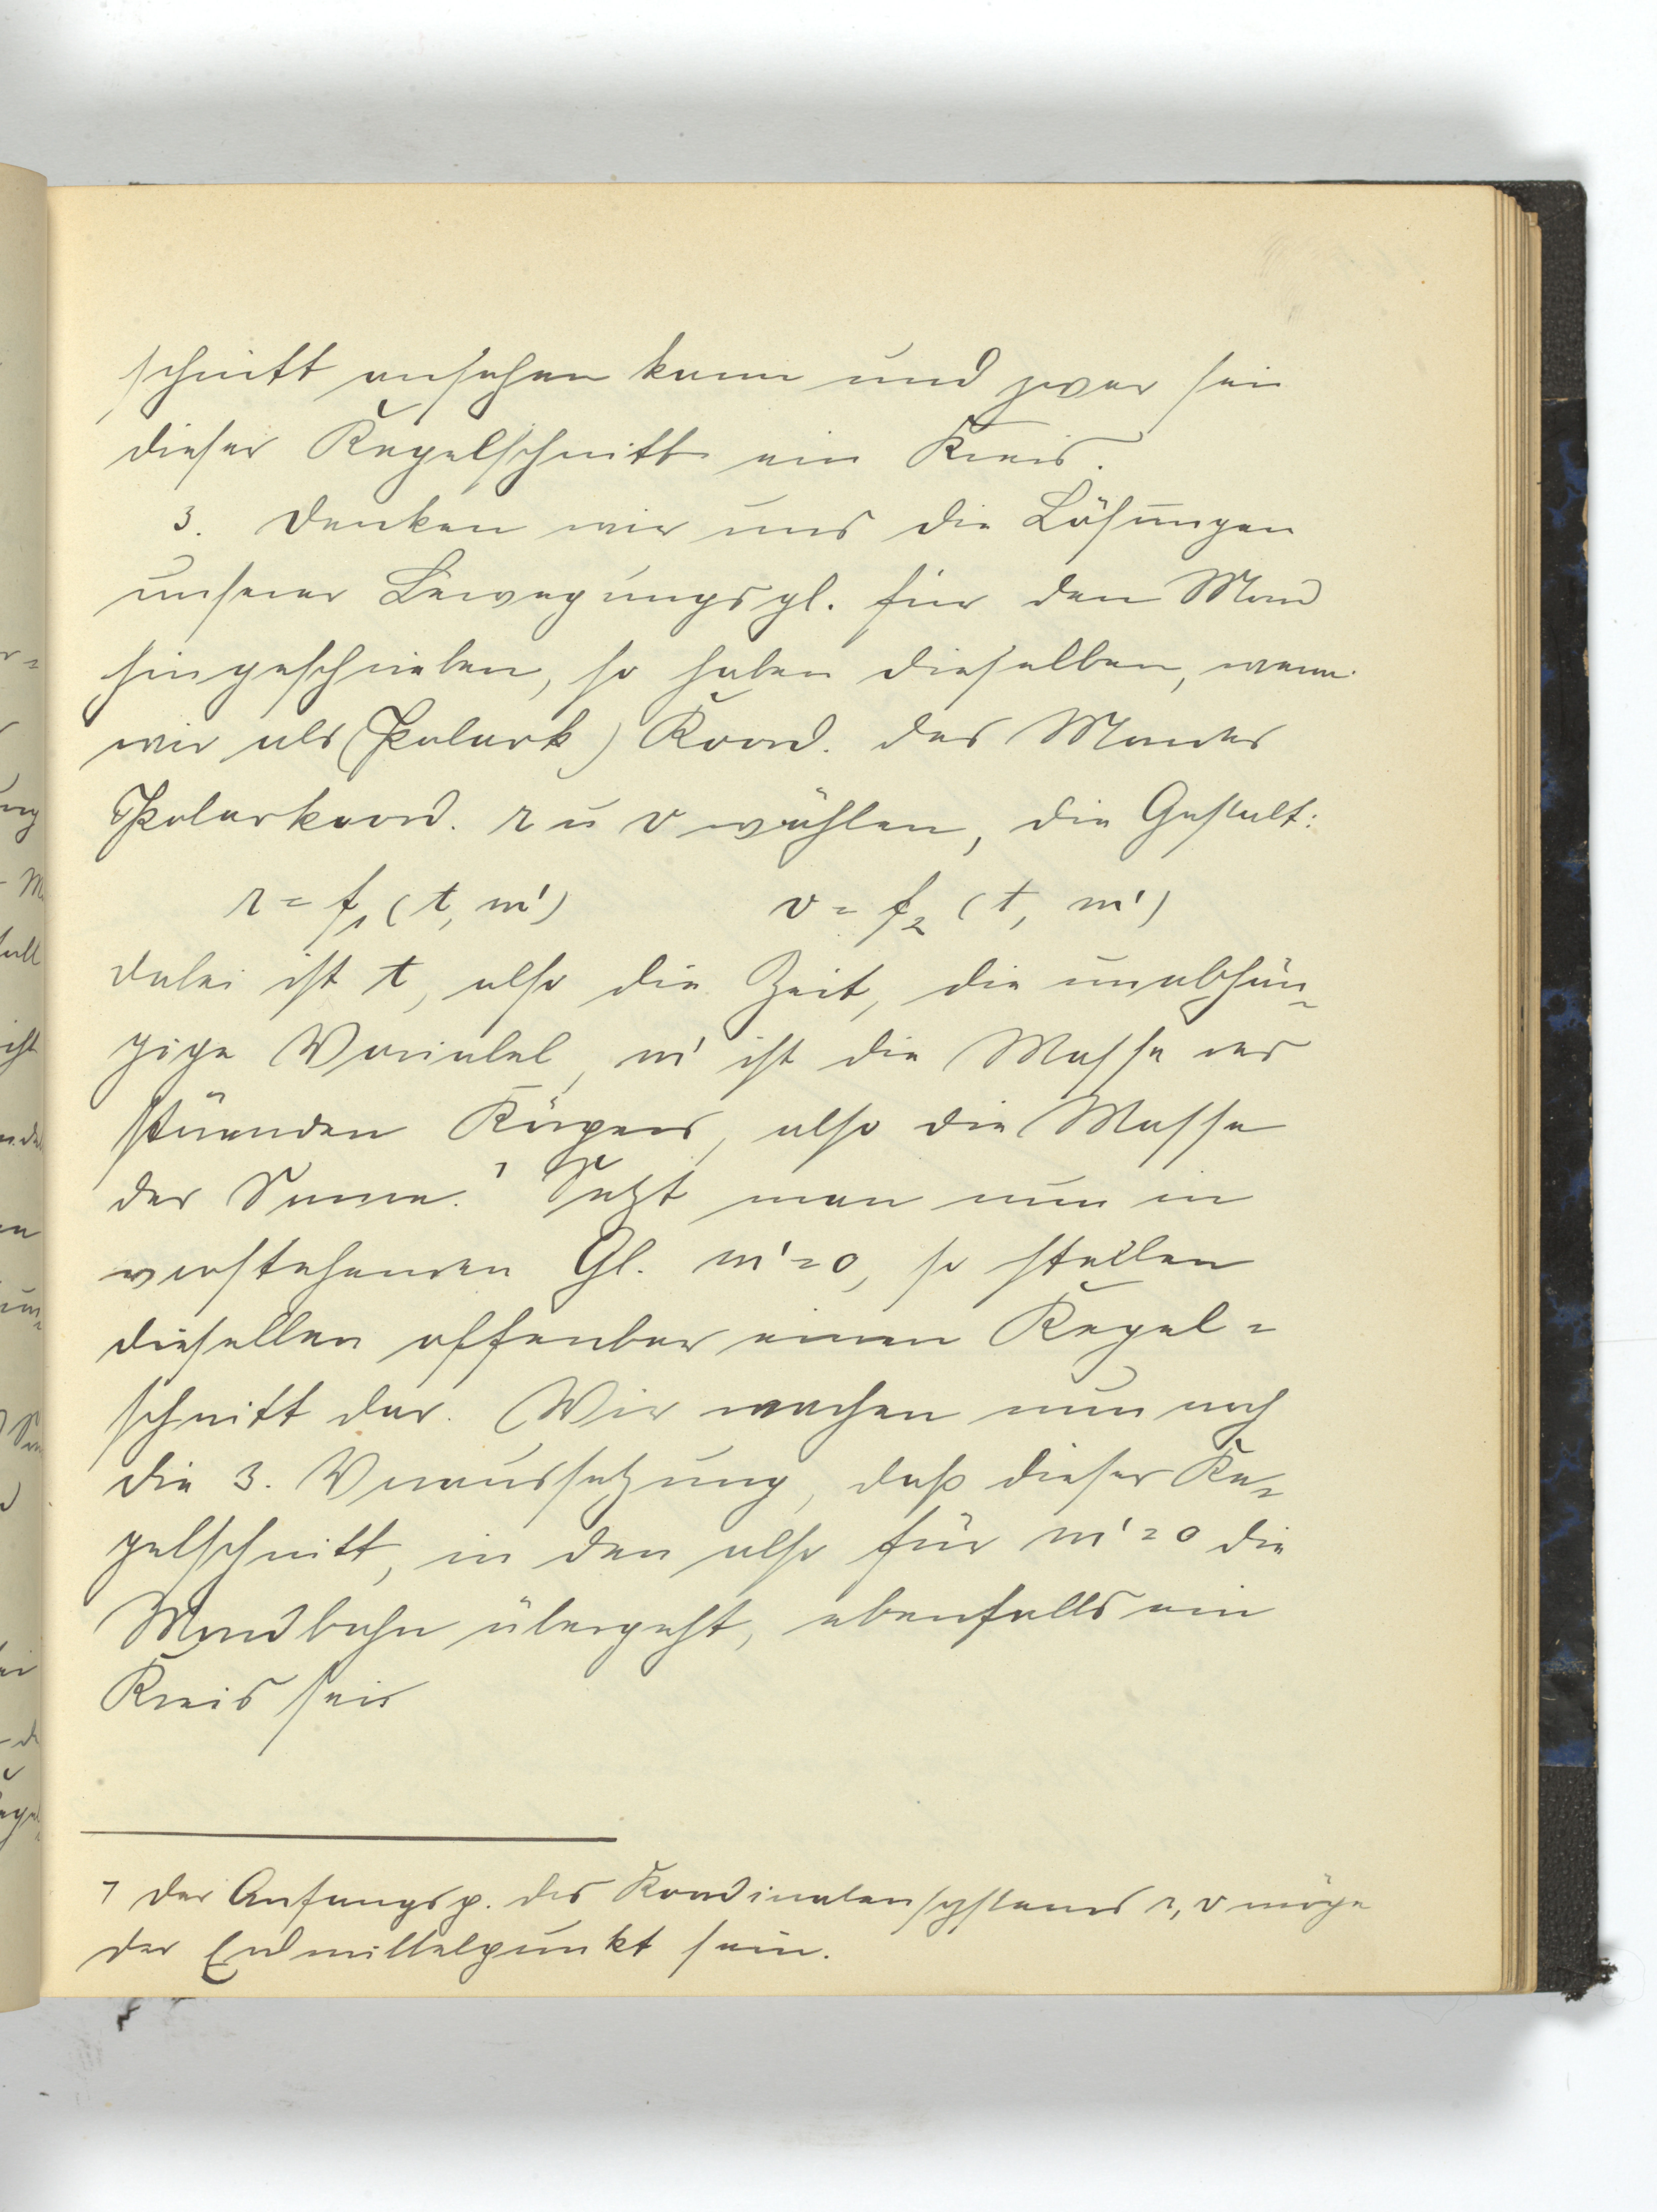 schnitt ansehen kann und zwar sei
dieser Kegelschnitt ein Kreis.
3. Denken wir uns die Lösungen
unserer Bewegungsgl. für den Mond
hingeschrieben, so haben dieselben, wenn
wir als (Polark) Koord. des Mondes
Polarkoord. r u v wählen, die Gestalt:
r = f₁ (t, m') v = f₂ (t, m')
dabei ist t, also die Zeit, die unabhän=
gige Variabel, m' ist die Masse des
störenden Körpers, also die Masse
der Sonne. ¹ Setzt man nun in
vorstehenden Gl. m'=0, so stellen
dieselben offenbar einen Kegel=
schnitt dar. Wir machen nun noch
die 3. Voraussetzung, daß dieser Ke=
gelschnitt, in den also für m'=0 die
Mondbahn übergeht, ebenfalls ein
Kreis sei
1 Der Anfangsp. des Koordinatensystems r, v möge
der Erdmittelpunkt sein.